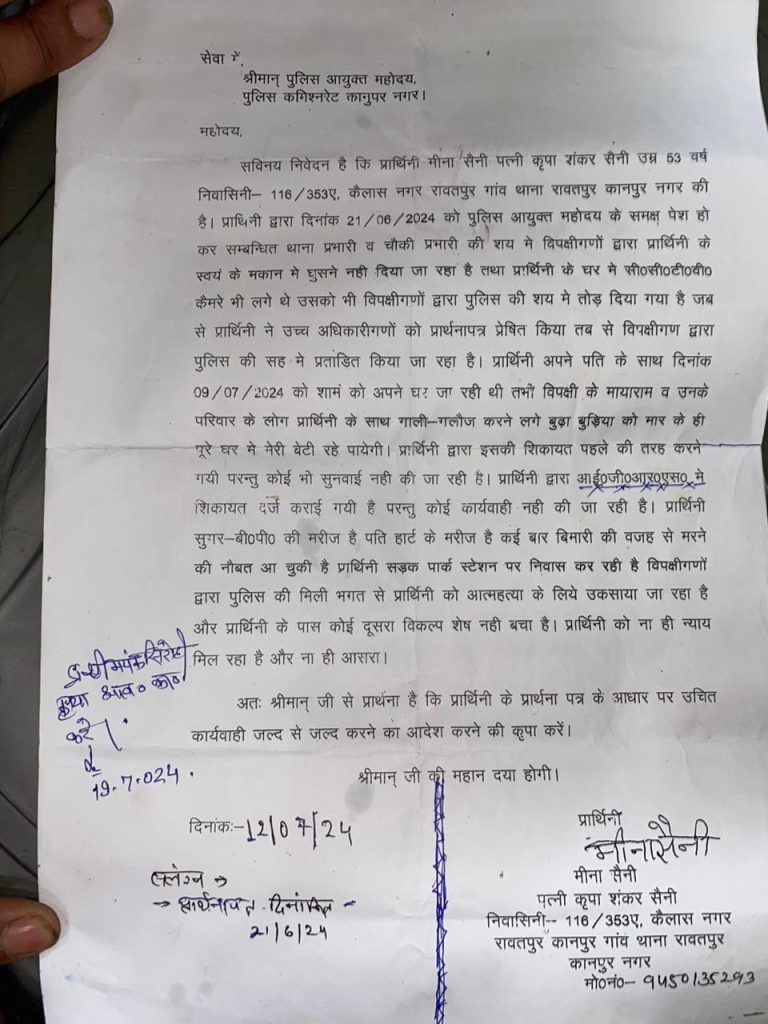 सेवा में,
श्रीमान् पुलिस आयुक्त महोदय,
पुलिस कमिश्नरेट कानुपर नगर।
महोदय,
सविनय निवेदन है कि प्रार्थिनी मीना सैनी पत्नी कृपा शंकर सैनी उम्र 53 वर्ष
निवासिनी– 116/353ए, कैलास नगर रावतपुर गांव थाना रावतपुर कानपुर नगर की
है। प्राथिनी द्वारा दिनांक 21/06/2024 को पुलिस आयुक्त महोदय के समक्ष पेश हो
कर सम्बन्धित थाना प्रभारी व चौकी प्रभारी की शय मे विपक्षीगणों द्वारा प्रार्थिनी के
स्वयं के मकान मे घुसने नही दिया जा रहा है तथा प्रार्थिनी के घर मे सी०सी०टी०वी०
कैमरे भी लगे थे उसको भी विपक्षीगणों द्वारा पुलिस की शय मे तोड़ दिया गया है जब
से प्रार्थिनी ने उच्च अधिकारीगणों को प्रार्थनापत्र प्रेषित किया तब से विपक्षीगण द्वारा
पुलिस की सह मे प्रताडित किया जा रहा है। प्रार्थिनी अपने पति के साथ दिनांक
09/07/2024 को शामं को अपने घर जा रही थी तभी विपक्षी के मायाराम व उनके
परिवार के लोग प्रार्थिनी के साथ गाली–गलौज करने लगे बुढ्ढा बुड़िया को मार के ही
पूरे घर मे मेरी बेटी रहे पायेगी। प्रार्थिनी द्वारा इसकी शिकायत पहले की तरह करने
गयी परन्तु कोई भी सुनवाई नही की जा रही है। प्रार्थिनी द्वारा आई०जी०आर०एस० मे
शिकायत दर्ज कराई गयी है परन्तु कोई कार्यवाही नही की जा रही है। प्रार्थिनी
सुगर–बी०पी० की मरीज है पति हार्ट के मरीज है कई बार बिमारी की वजह से मरने
की नौबत आ चुकी है प्रार्थिनी सड़क पार्क स्टेशन पर निवास कर रही है विपक्षीगणों
द्वारा पुलिस की मिली भगत से प्रार्थिनी को आत्महत्या के लिये उकसाया जा रहा है
और प्रार्थिनी के पास कोई दूसरा विकल्प शेष नही बचा है। प्रार्थिनी को ना ही न्याय
मिल रहा है और ना ही आसरा।
कृपया आव० का०
करें।
19.7.024.
अतः श्रीमान् जी से प्रार्थना है कि प्रार्थिनी के प्रार्थना पत्र के आधार पर उचित
कार्यवाही जल्द से जल्द करने का आदेश करने की कृपा करें।
श्रीमान् जी की महान दया होगी।
दिनांकः–12/07/24
संलग्न →
→ प्रार्थनापत्र दिनांकित –
21/6/24
प्रार्थिनी
मीना सैनी
मीना सैनी
पत्नी कृपा शंकर सैनी
निवासिनी– 116/353ए, कैलास नगर
रावतपुर कानपुर गांव थाना रावतपुर
कानपुर नगर
मो०नं०– 9450135293